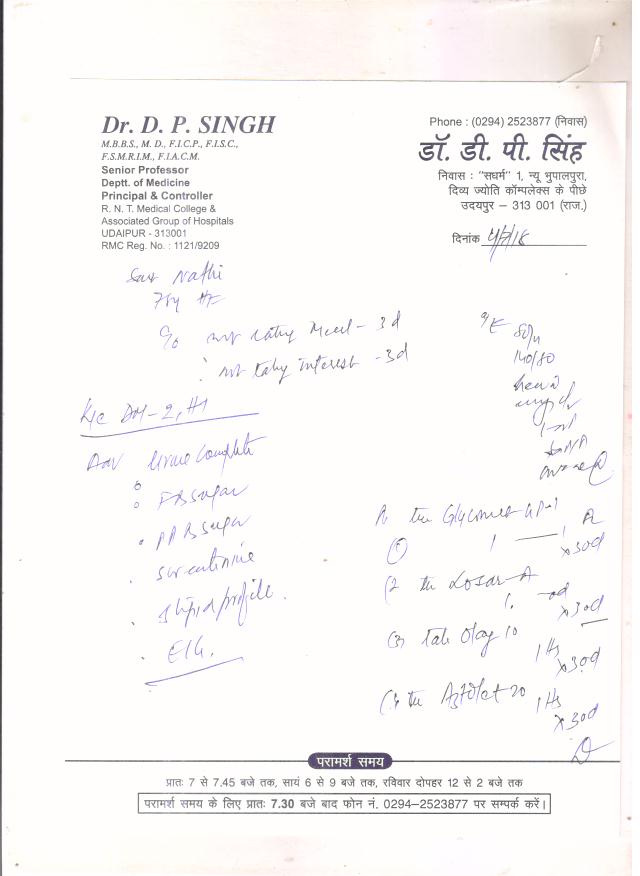 Dr. D. P. SINGH
M.B.B.S., M. D., F.I.C.P., F.I.S.C.,
F.S.M.R.I.M., F.I.A.C.M.
Senior Professor
Deptt. of Medicine
Principal & Controller
R. N. T. Medical College &
Associated Group of Hospitals
UDAIPUR - 313001
RMC Reg. No. : 1121/9209
Phone : (0294) 2523877 (निवास)
डॉ. डी. पी. सिंह
निवास : "सधर्म" 1, न्यू भुपालपुरा,
दिव्य ज्योति कॉम्पलेक्स के पीछे
उदयपुर – 313 001 (राज.)
दिनांक
Nathi
C/o not eating Meal - 3d
not taking interest - 3d
K/c DM-2, HT
Adv Urine Complete
FB sugar
PPB sugar
S. creatinine
lipid profile
ECG.
O/E 80/m
140/80
(1) 1 — 1 x 30d
(2 Losar-A
1. - od x 30d
(3) Tab Olay 10
1 Hs x 30d
20 1 Hs
x 30d
परामर्श समय
प्रातः 7 से 7.45 बजे तक, सायं 6 से 9 बजे तक, रविवार दोपहर 12 से 2 बजे तक
परामर्श समय के लिए प्रातः 7.30 बजे बाद फोन नं. 0294–2523877 पर सम्पर्क करें।